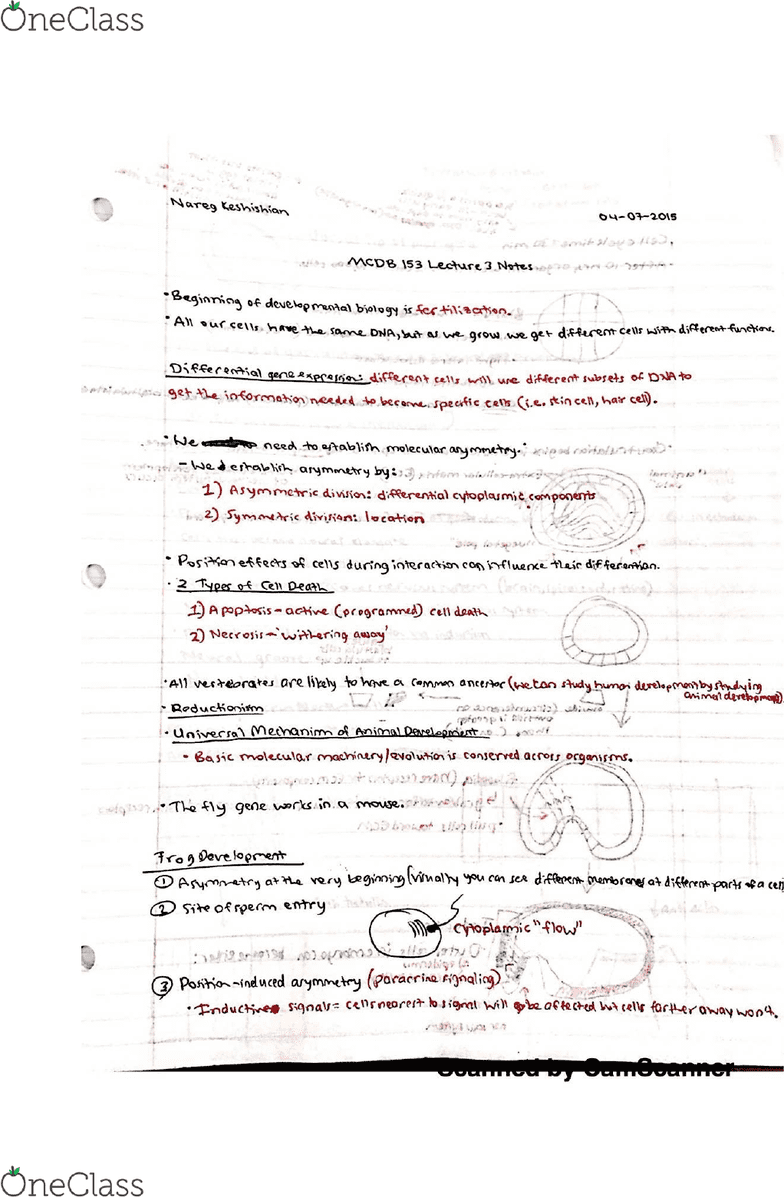 OneClass
Nareg Keshishian
04-07-2015
MCDB 153 Lecture 3 Notes
• Beginning of developmental biology is fertilization.
• All our cells have the same DNA, but as we grow we get different cells with different functions.
Differential gene expression: different cells will use different subsets of DNA to
get the information needed to become specific cells (i.e. skin cell, hair cell).
• We need to establish molecular asymmetry.
- We establish asymmetry by:
1) Asymmetric division: differential cytoplasmic components
2) Symmetric division: location
• Position effects of cells during interaction can influence their differention.
• 2 Types of Cell Death
1) Apoptosis - active (programmed) cell death
2) Necrosis - 'withering away'
• All vertebrates are likely to have a common ancestor (we can study human development by studying
animal development).
• Reductionism
• Universal Mechanism of Animal Development
• Basic molecular machinery/evolution is conserved across organisms.
• The fly gene works in a mouse.
Frog Development
① Asymmetry at the very beginning (visually you can see different membranes at different parts of a cell
② Site of sperm entry
Cytoplasmic "flow"
③ Position-induced asymmetry (paracrine signaling)
• Inductive signals = cells nearest to signal will be affected but cells farther away won't.
Scanned by CamScanner
OneClass